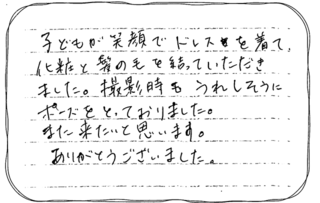 子どもが笑顔でドレスを着て、
化粧と髪の毛を結っていただき
ました。撮影時も うれしそうに
ポーズをとっておりました。
また来たいと思います。
ありがとうございました。